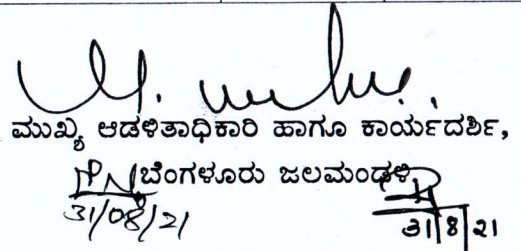 ಮುಖ್ಯ ಆಡಳಿತಾಧಿಕಾರಿ ಹಾಗೂ ಕಾರ್ಯದರ್ಶಿ,
ಬೆಂಗಳೂರು ಜಲಮಂಡಳಿ
31/08/21
31/8/21